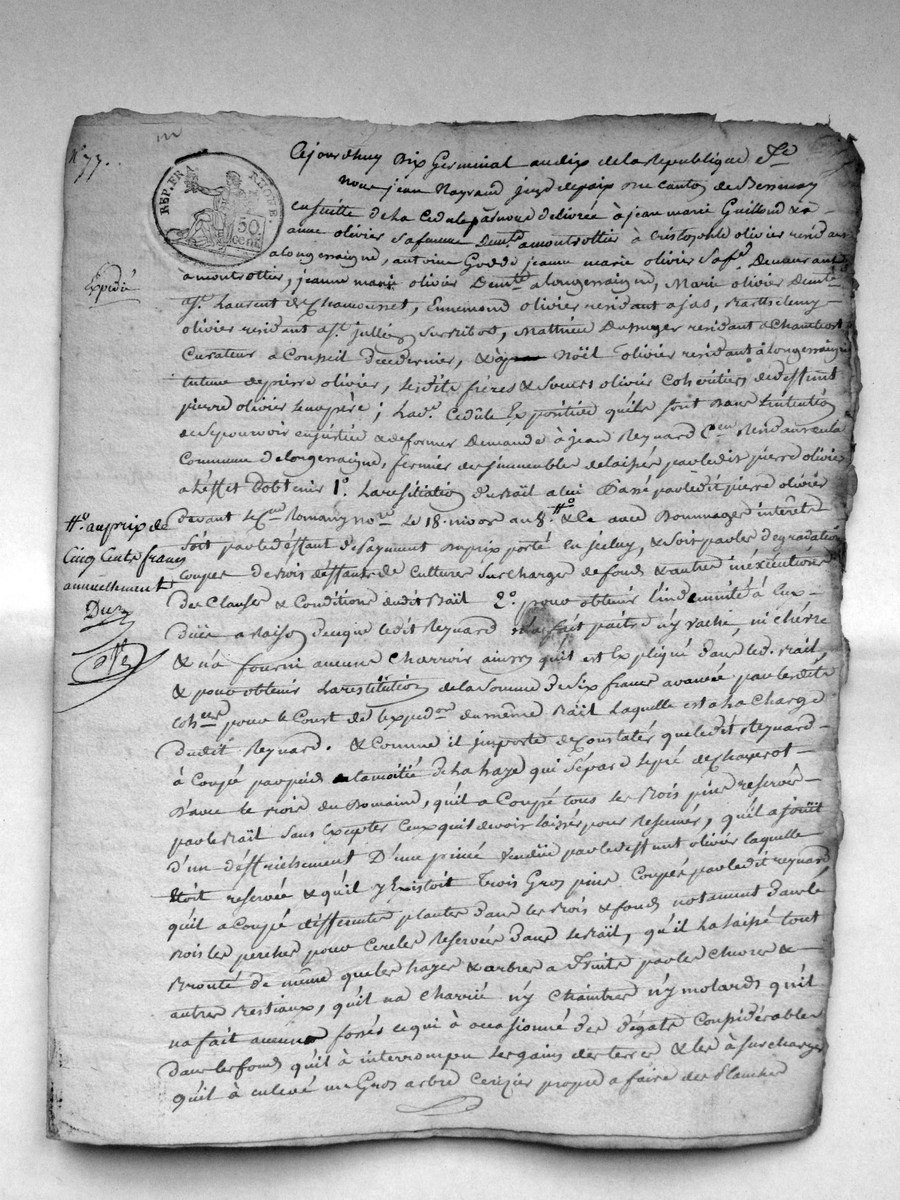 N° 77.
REP. FRA. RHONE.
50 cent.
Cejourdhuy dix Germinal an dix de la Republique &c
nous jean Raynaud juge de paix du Canton de Bessenay
en suitte de la Cedule par nous delivrée à jean marie Guilloud &
anne olivier sa femme Demt. a montrottier à Cristophle olivier residant
a longessaigne, antoine Godde jeanne marie olivier sa fe. Demeurant
Expedié
à montrottier, jeanne marie olivier Demte. a longessaigne, Marie olivier Demte.
a St. Laurent de Chamousset, Ennemond olivier residant a jas, Barthelemy
olivier residant a St. jullien sur Bibost, Matthieu Dussuyer residant a Chambost
Curateur a Conseil de ce dernier, & à Noël olivier residant à longessaigne
tuteur de pierre olivier, lesdits frères & soeurs olivier Coheritiers de deffunt
pierre olivier leur père; Lad. Cedule Expositive qu'ils sont dans l'intention
de se pourvoir en justice & de former Demande à jean Reynard Cen. Residant en la
Commune de longessaigne, fermier des immeubles delaissés par ledit pierre olivier
a l'effet d'obtenir 1°. La resiliation du Bail a lui Passé par ledit pierre olivier
devant le Cen. Romany nore. Le 18. nivose an 8. # & Ce avec Dommages interêts
# au prix de
Cinq Cents francs
annuellement
Duz
soit par le deffaut de Payment du prix porté en icelui, & soit par les degradations
Coupes de Bois deffaut de Culture surcharge de fonds & autres inéxécutions
des Clauses & Conditions dudit Bail 2°. pour obtenir l'indemnité à Eux
duëe a raison de ce que ledit Reynard n'a fait paitre n'y vache, ni chèvre
& n'a fourni aucuns Charrois ainsy qu'il est Expliqué dans led. Bail,
& pour obtenir la restitution de la somme de Six francs avancée par lesdits
Coheers. pour le Cout de l'expedon. du même Bail laquelle est a la Charge
dudit Reynard. & Comme il importe de Constater que ledit Reynard
à Coupé par pied la moitié de la haye qui sépare le pré de
D'avec le Bois du Domaine, qu'il a Coupé tous les Bois pins reservés
par le Bail sans Excepter Ceux qu'il devoit laisser pour Resumer, qu'il a joüit
d'un deffrichement D'une pinée venduë par le deffunt olivier laquelle
Etoit reservée & qu'il y Existoit Trois Gros pins Coupés par ledit reynard
qu'il a Coupé differentes plantes dans les Bois & fonds notament dans le
Bois les perches pour Cercles Reservées dans le Bail, qu'il a laissé tout
Brouté de même que les hayes & arbres a Fruits par les Chevres &
autres Bestiaux, qu'il n'a Charrié n'y Chambres n'y molards qu'il
n'a fait aucuns fossés ce qui à occasionné des dégats Considérables
dans les fonds qu'il à interrompu les gains des terres & les à surchargés
qu'il à enlevé un Gros arbre Cerizier propre a faire des Planches